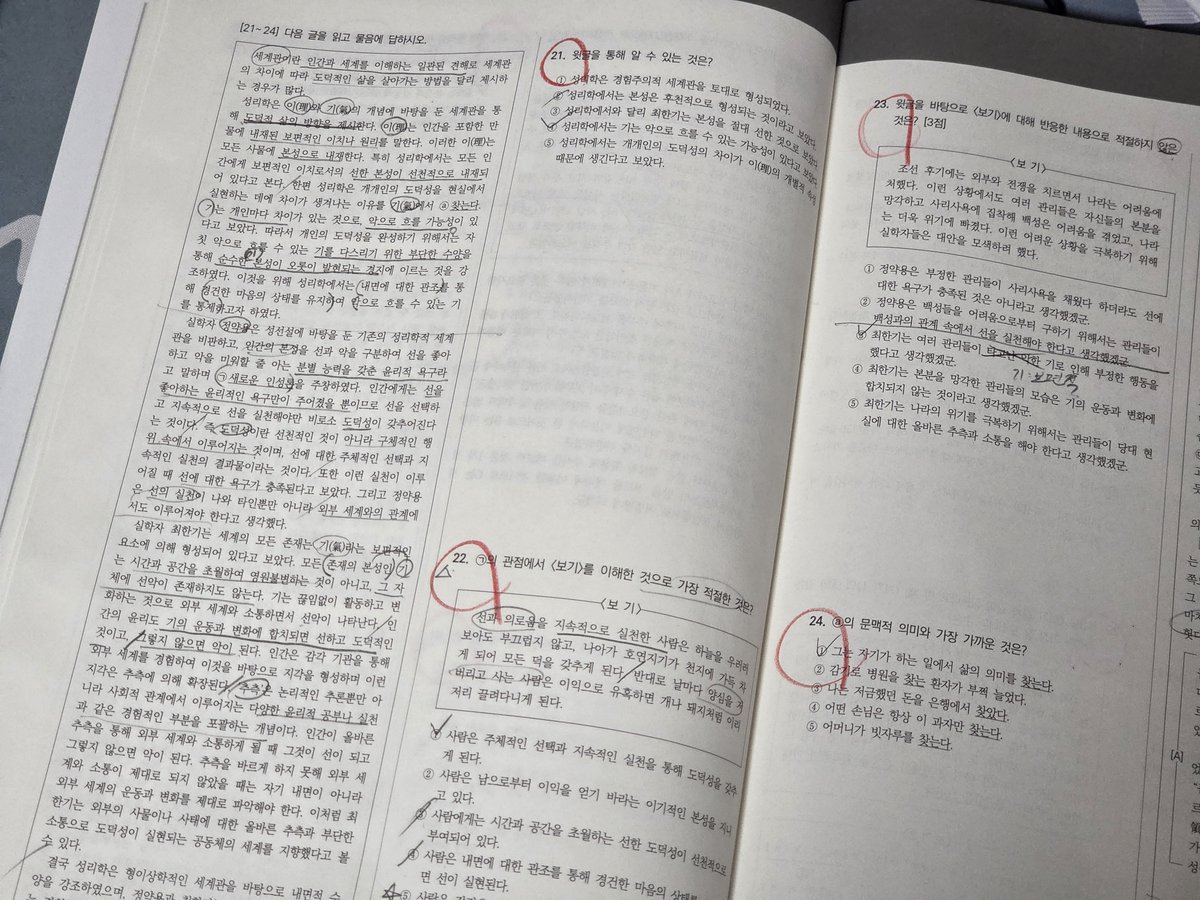 [21~24] 다음 글을 읽고 물음에 답하시오.
세계관이란 인간과 세계를 이해하는 일관된 견해로 세계관
의 차이에 따라 도덕적인 삶을 살아가는 방법을 달리 제시하
는 경우가 많다.
성리학은 이(理)와 기(氣)의 개념에 바탕을 둔 세계관을 통
해 도덕적 삶의 방향을 제시한다. 이(理)는 인간을 포함한 만
물에 내재된 보편적인 이치나 원리를 말한다. 이러한 이(理)는
모든 사물에 본성으로 내재한다. 특히 성리학에서는 모든 인
간에게 보편적인 이치로서의 선한 본성이 선천적으로 내재되
어 있다고 본다. 한편 성리학은 개개인의 도덕성을 현실에서
실현하는 데에 차이가 생겨나는 이유를 기(氣)에서 ⓐ찾는다.
기는 개인마다 차이가 있는 것으로, 악으로 흐를 가능성이 있
다고 보았다. 따라서 개인의 도덕성을 완성하기 위해서는 자
칫 악으로 흐를 수 있는 기를 다스리기 위한 부단한 수양을
통해 순수한 본성이 오롯이 발현되는 경지에 이르는 것을 강
조하였다. 이것을 위해 성리학에서는 내면에 대한 관조를 통
해 경건한 마음의 상태를 유지하여 악으로 흐를 수 있는 기
를 통제하고자 하였다.
실학자 정약용은 성선설에 바탕을 둔 기존의 성리학적 세계
관을 비판하고, 인간의 본성을 선과 악을 구분하여 선을 좋아
하고 악을 미워할 줄 아는 분별 능력을 갖춘 윤리적 욕구라
고 말하며 ㉠새로운 인성론을 주창하였다. 인간에게는 선을
좋아하는 윤리적인 욕구만이 주어졌을 뿐이므로 선을 선택하
고 지속적으로 선을 실천해야만 비로소 도덕성이 갖추어진다
는 것이다. 즉 도덕성이란 선천적인 것이 아니라 구체적인 행
위 속에서 이루어지는 것이며, 선에 대한 주체적인 선택과 지
속적인 실천의 결과물이라는 것이다. 또한 이런 실천이 이루
어질 때 선에 대한 욕구가 충족된다고 보았다. 그리고 정약용
은 선의 실천이 나와 타인뿐만 아니라 외부 세계와의 관계에
서도 이루어져야 한다고 생각했다.
실학자 최한기는 세계의 모든 존재는 기(氣)라는 보편적인
요소에 의해 형성되어 있다고 보았다. 모든 존재의 본성인 기
는 시간과 공간을 초월하여 영원불변하는 것이 아니고, 그 자
체에 선악이 존재하지도 않는다. 기는 끊임없이 활동하고 변
화하는 것으로 외부 세계와 소통하면서 선악이 나타난다. 인
간의 윤리도 기의 운동과 변화에 합치되면 선하고 도덕적인
것이고, 그렇지 않으면 악이 된다. 인간은 감각 기관을 통해
외부 세계를 경험하여 이것을 바탕으로 지각을 형성하며 이런
지각은 추측에 의해 확장된다. 추측은 논리적인 추론뿐만 아
니라 사회적 관계에서 이루어지는 다양한 윤리적 공부나 실천
과 같은 경험적인 부분을 포괄하는 개념이다. 인간이 올바른
추측을 통해 외부 세계와 소통하게 될 때 그것이 선이 되고
그렇지 않으면 악이 된다. 추측을 바르게 하지 못해 외부 세
계와 소통이 제대로 되지 않았을 때는 자기 내면이 아니라
외부 세계의 운동과 변화를 제대로 파악해야 한다. 이처럼 최
한기는 외부의 사물이나 사태에 대한 올바른 추측과 부단한
소통으로 도덕성이 실현되는 공동체의 세계를 지향했다고 볼
수 있다.
결국 성리학은 형이상학적인 세계관을 바탕으로 내면적 수
양을 강조하였으며, 정약용과
21. 윗글을 통해 알 수 있는 것은?
① 성리학은 경험주의적 세계관을 토대로 형성되었다.
② 성리학에서는 본성은 후천적으로 형성되는 것이라고 보았다.
③ 성리학에서와 달리 최한기는 본성을 절대 선한 것으로 보았다.
④ 성리학에서는 기는 악으로 흐를 수 있는 가능성이 있다고 보았다.
⑤ 성리학에서는 개개인의 도덕성의 차이가 이(理)의 개별적 속성
때문에 생긴다고 보았다.
22. ㉠의 관점에서 <보기>를 이해한 것으로 가장 적절한 것은?
<보 기>
선과 의로움을 지속적으로 실천한 사람은 하늘을 우러러
보아도 부끄럽지 않고, 나아가 호연지기가 천지에 가득 차
게 되어 모든 덕을 갖추게 된다. 반대로 날마다 양심을 저
버리고 사는 사람은 이익으로 유혹하면 개나 돼지처럼 이리
저리 끌려다니게 된다.
① 사람은 주체적인 선택과 지속적인 실천을 통해 도덕성을 갖추
게 된다.
② 사람은 남으로부터 이익을 얻기 바라는 이기적인 본성을 지니
고 있다.
③ 사람에게는 시간과 공간을 초월하는 선한 도덕성이 선천적으로
부여되어 있다.
④ 사람은 내면에 대한 관조를 통해 경건한 마음의 상태를
면 선이 실현된다.
⑤ 사람은
23. 윗글을 바탕으로 <보기>에 대해 반응한 내용으로 적절하지 않은
것은? [3점]
<보 기>
조선 후기에는 외부와 전쟁을 치르면서 나라는 어려움에
처했다. 이런 상황에서도 여러 관리들은 자신들의 본분을
망각하고 사리사욕에 집착해 백성은 어려움을 겪었고, 나라
는 더욱 위기에 빠졌다. 이런 어려운 상황을 극복하기 위해
실학자들은 대안을 모색하려 했다.
① 정약용은 부정한 관리들이 사리사욕을 채웠다 하더라도 선에
대한 욕구가 충족된 것은 아니라고 생각했겠군.
② 정약용은 백성들을 어려움으로부터 구하기 위해서는 관리들이
백성과의 관계 속에서 선을 실천해야 한다고 생각했겠군.
③ 최한기는 여러 관리들이 타고난 악한 기로 인해 부정한 행동을
했다고 생각했겠군.
기:보편적
④ 최한기는 본분을 망각한 관리들의 모습은 기의 운동과 변화에
합치되지 않는 것이라고 생각했겠군.
⑤ 최한기는 나라의 위기를 극복하기 위해서는 관리들이 당대 현
실에 대한 올바른 추측과 소통을 해야 한다고 생각했겠군.
24. ⓐ의 문맥적 의미와 가장 가까운 것은?
① 그는 자기가 하는 일에서 삶의 의미를 찾는다.
② 감기로 병원을 찾는 환자가 부쩍 늘었다.
③ 나는 저금했던 돈을 은행에서 찾았다.
④ 어떤 손님은 항상 이 과자만 찾는다.
⑤ 어머니가 빗자루를 찾는다.
[A]